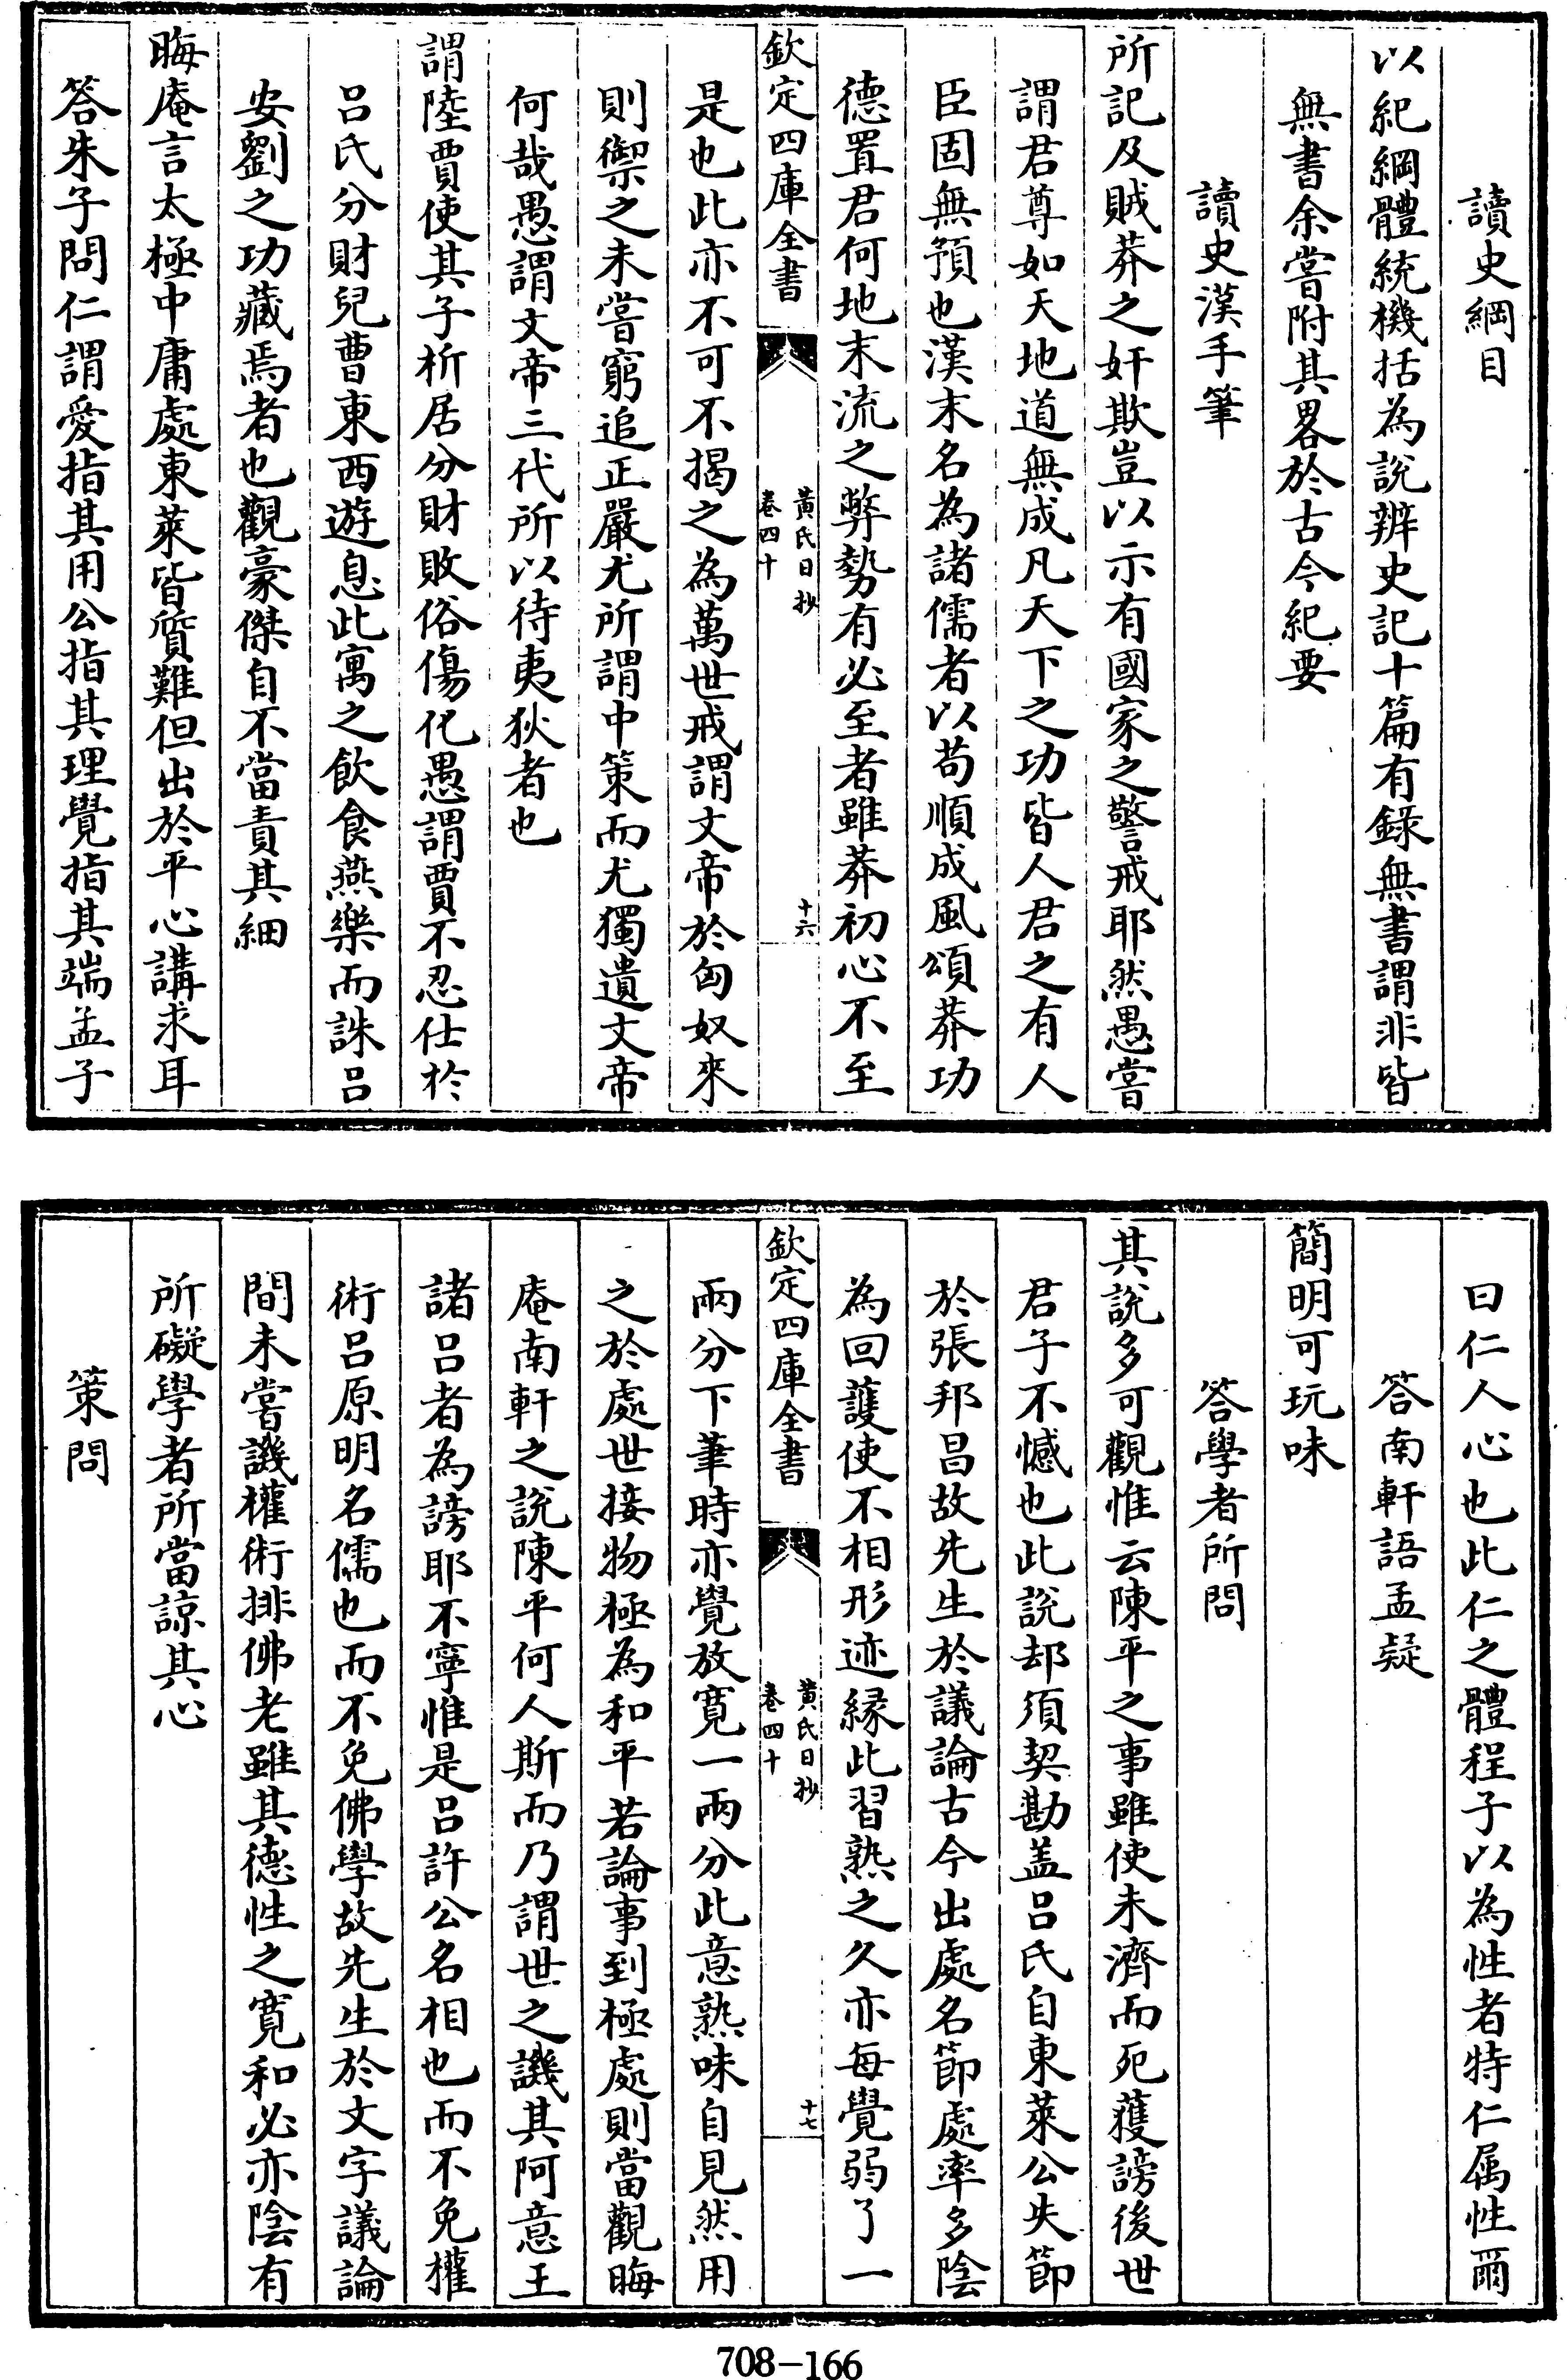 讀史綱目
以紀綱體統機括為說辨史記十篇有錄無書謂非皆
無書余嘗附其畧於古今紀要
讀史漢手筆
所記及賊莽之奸欺豈以示有國家之警戒耶然愚嘗
謂君尊如天地道無成凡天下之功皆人君之有人
臣固無預也漢末名為諸儒者以苟順成風頌莽功
德置君何地末流之弊勢有必至者雖莽初心不至
欽定四庫全書
黃氏日抄
卷四十
十六
是也此亦不可不揭之為萬世戒謂文帝於匈奴來
則禦之未嘗窮追正嚴尤所謂中策而尤獨遺文帝
何哉愚謂文帝三代所以待夷狄者也
謂陸賈使其子析居分財敗俗傷化愚謂賈不忍仕於
呂氏分財兒曹東西遊息此寓之飲食燕樂而誅呂
安劉之功藏焉者也觀豪傑自不當責其細
晦庵言太極中庸處東萊皆質難但出於平心講求耳
答朱子問仁謂愛指其用公指其理覺指其端孟子
曰仁人心也此仁之體程子以為性者特仁属性爾
答南軒語孟疑
簡明可玩味
答學者所問
其說多可觀惟云陳平之事雖使未濟而死蒦謗後世
君子不憾也此說却須契勘盖呂氏自東萊公失節
於張邦昌故先生於議論古今出處名節處率多陰
為回護使不相形迹緣此習熟之久亦每覺弱了一
欽定四庫全書
黃氏日抄
卷四十
十七
兩分下筆時亦覺放寬一兩分此意熟味自見然用
之於處世接物極為和平若論事到極處則當觀晦
庵南軒之說陳平何人斯而乃謂世之譏其阿意王
諸呂者為謗耶不寧惟是呂許公名相也而不免權
術呂原明名儒也而不免佛學故先生於文字議論
間未嘗譏權術排佛老雖其德性之寬和必亦陰有
所礙學者所當諒其心
策問
708-166